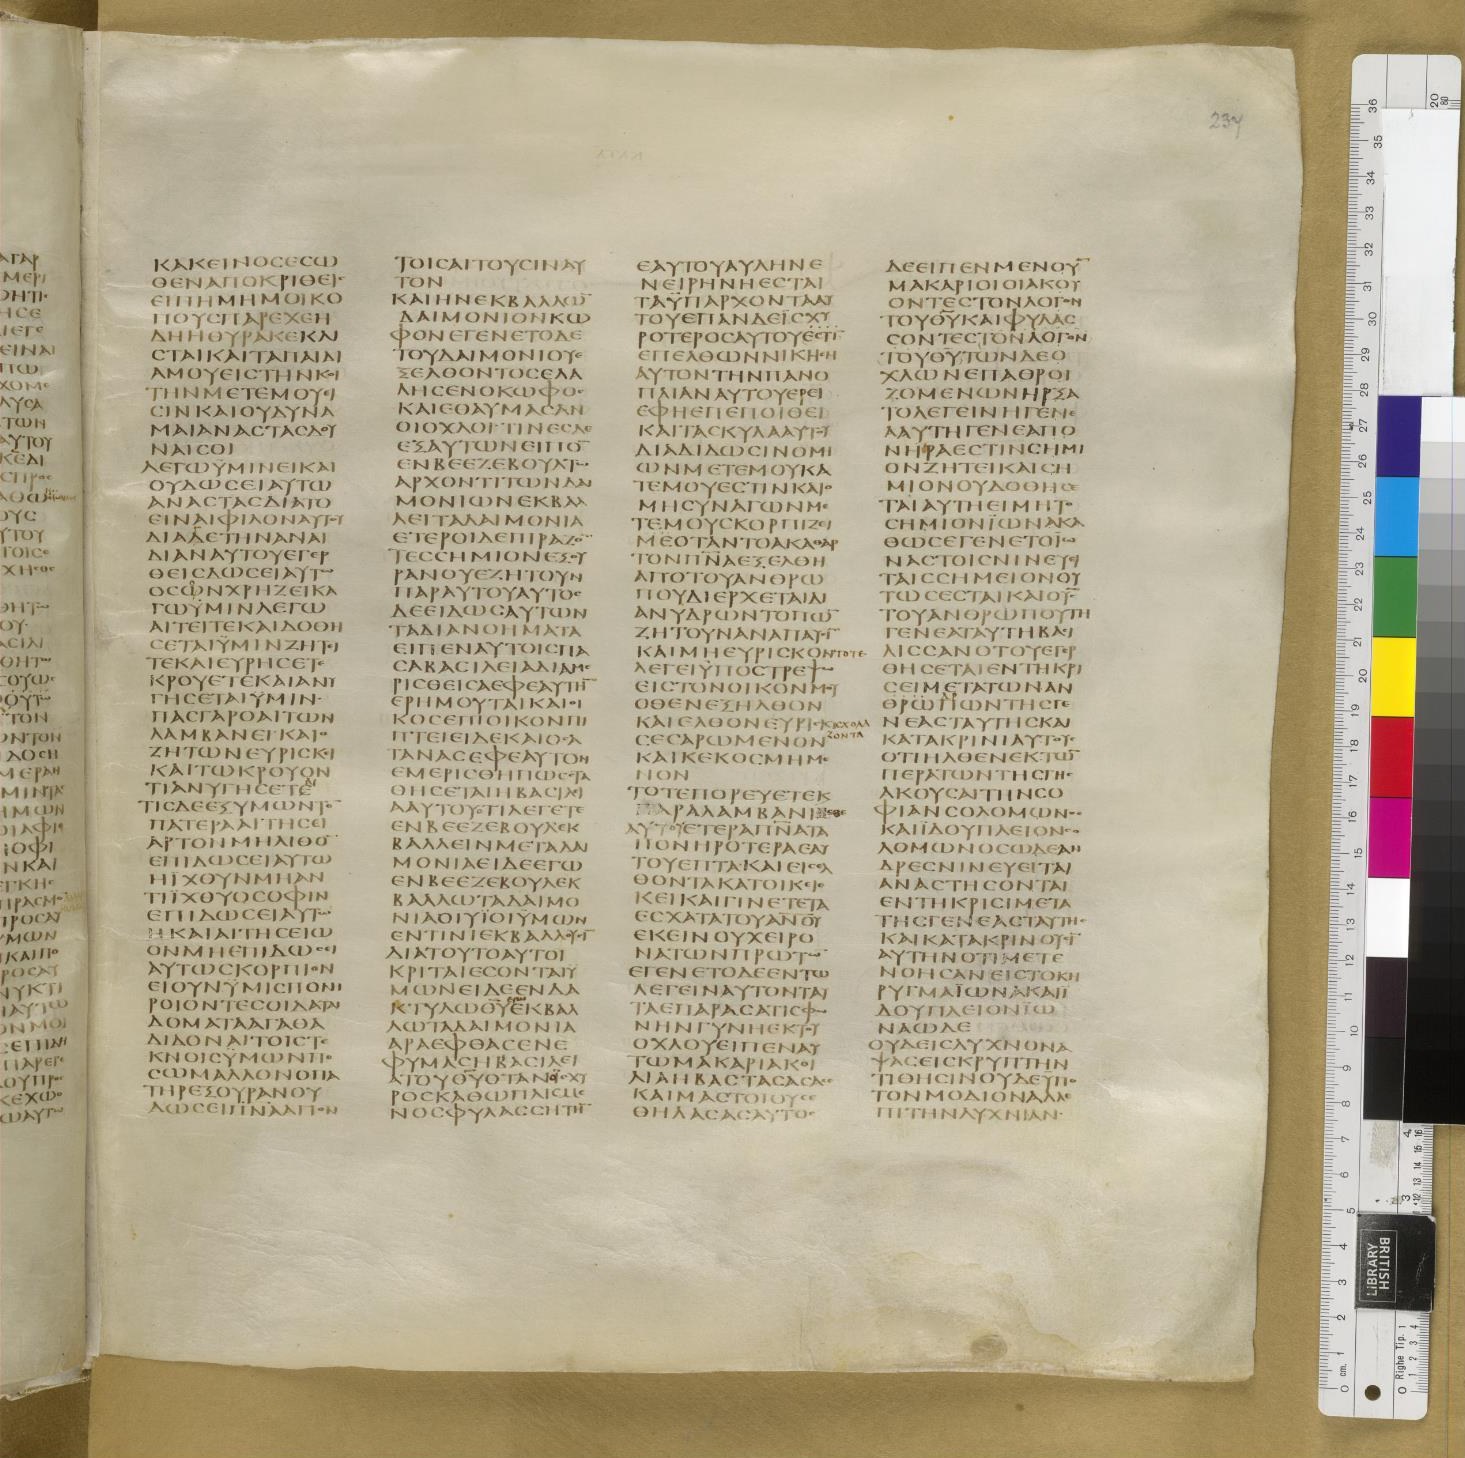 ΚΑΤΑ
237
ΚΑΚΕΙΝΟΣΕΣΩ
ΘΕΝΑΠΟΚΡΙΘΕΙΣ
ΕΙΠΗΜΗΜΟΙΚΟ
ΠΟΥΣΠΑΡΕΧΕΗ
ΔΗΗΘΥΡΑΚΕΚΛΙ
ΣΤΑΙΚΑΙΤΑΠΑΙΔΙ
ΑΜΟΥΕΙΣΤΗΝΚΟΙ
ΤΗΝΜΕΤΕΜΟΥΕΙ
ΣΙΝΚΑΙΟΥΔΥΝΑ
ΜΑΙΑΝΑΣΤΑΣΔΟΥ
ΝΑΙΣΟΙ
ΛΕΓΩΫΜΙΝΕΙΚΑΙ
ΟΥΔΩΣΕΙΑΥΤΩ
ΑΝΑΣΤΑΣΔΙΑΤΟ
ΕΙΝΑΙΦΙΛΟΝΑΥΤΟΥ
ΔΙΑΔΕΤΗΝΑΝΑΙ
ΔΙΑΝΑΥΤΟΥΕΓΕΡ
ΘΕΙΣΔΩΣΕΙΑΥΤΩ
ΟΣΩΝΧΡΗΖΕΙΚΑ
ΓΩΫΜΙΝΛΕΓΩ
ΑΙΤΕΙΤΕΚΑΙΔΟΘΗ
ΣΕΤΑΙΫΜΙΝΖΗΤΕΙ
ΤΕΚΑΙΕΥΡΗΣΕΤΕ
ΚΡΟΥΕΤΕΚΑΙΑΝΥ
ΓΗΣΕΤΑΙΫΜΙΝ·
ΠΑΣΓΑΡΟΑΙΤΩΝ
ΛΑΜΒΑΝΕΙ·ΚΑΙΟ
ΖΗΤΩΝΕΥΡΙΣΚΕΙ
ΚΑΙΤΩΚΡΟΥΟΝ
ΤΙΑΝΥΓΗΣΕΤΕ
ΤΙΣΔΕΕΞΥΜΩΝΤΟ̅
ΠΑΤΕΡΑΑΙΤΗΣΕΙ
ΑΡΤΟΝΜΗΛΙΘΟ̅
ΕΠΙΔΩΣΕΙΑΥΤΩ
ΗΪΧΟΥΝΜΗΑΝ
ΤΙΪΧΘΥΟΣΟΦΙΝ
ΕΠΙΔΩΣΕΙΑΥΤΩ
ΗΚΑΙΑΙΤΗΣΕΙΩ
ΟΝΜΗΕΠΙΔΩΣΕΙ
ΑΥΤΩΣΚΟΡΠΙΟΝ
ΕΙΟΥΝΫΜΙΣΠΟΝΗ
ΡΟΙΟΝΤΕΣΟΙΔΑΤΑΙ
ΔΟΜΑΤΑΑΓΑΘΑ
ΔΙΔΟΝΑΙΤΟΙΣΤΕ
ΚΝΟΙΣΫΜΩΝΠΟ
ΣΩΜΑΛΛΟΝΟΠΑ
ΤΗΡΕΞΟΥΡΑΝΟΥ
ΔΩΣΕΙΠΝ̅ΑΑΓΙΟΝ
ΤΟΙΣΑΙΤΟΥΣΙΝΑΥ
ΤΟΝ
ΚΑΙΗΝΕΚΒΑΛΛΩ̅
ΔΑΙΜΟΝΙΟΝΚΩ
ΦΟΝΕΓΕΝΕΤΟΔΕ
ΤΟΥΔΑΙΜΟΝΙΟΥΕ
ΞΕΛΘΟΝΤΟΣΕΛΑ
ΛΗΣΕΝΟΚΩΦΟΣ
ΚΑΙΕΘΑΥΜΑΣΑΝ
ΟΙΟΧΛΟΙ·ΤΙΝΕΣΔΕ
ΕΞΑΥΤΩΝΕΙΠΟ̅
ΕΝΒΕΕΖΕΒΟΥΛΤΩ
ΑΡΧΟΝΤΙΤΩΝΔΑΙ
ΜΟΝΙΩΝΕΚΒΑΛ
ΛΕΙΤΑΔΑΙΜΟΝΙΑ
ΕΤΕΡΟΙΔΕΠΙΡΑΖΟ̅
ΤΕΣΣΗΜΙΟΝΕΞΟΥ
ΡΑΝΟΥΕΖΗΤΟΥΝ
ΠΑΡΑΥΤΟΥΑΥΤΟΣ
ΔΕΕΙΔΩΣΑΥΤΩΝ
ΤΑΔΙΑΝΟΗΜΑΤΑ
ΕΙΠΕΝΑΥΤΟΙΣΠΑ
ΣΑΒΑΣΙΛΕΙΑΔΙΑΜΕ
ΡΙΣΘΕΙΣΑΕΦΕΑΥΤΗ̅
ΕΡΗΜΟΥΤΑΙΚΑΙΟΙ
ΚΟΣΕΠΙΟΙΚΟΝΠΙ
ΠΤΕΙΕΙΔΕΚΑΙΟΣΑ
ΤΑΝΑΣΕΦΕΑΥΤΟΝ
ΕΜΕΡΙΣΘΗΠΩΣΤΑ
ΘΗΣΕΤΑΙΗΒΑΣΙΛΕΙ
ΑΑΥΤΟΥΟΤΙΛΕΓΕΤΕ
ΕΝΒΕΕΖΕΒΟΥΛΕΚ
ΒΑΛΛΕΙΝΜΕΤΑΔΑΙ
ΜΟΝΙΑΕΙΔΕΕΓΩ
ΕΝΒΕΕΖΕΒΟΥΛΕΚ
ΒΑΛΛΩΤΑΔΑΙΜΟ
ΝΙΑΟΙΥΪΟΙΫΜΩΝ
ΕΝΤΙΝΙΕΚΒΑΛΛΟΥΣΙ̅
ΔΙΑΤΟΥΤΟΑΥΤΟΙ
ΚΡΙΤΑΙΕΣΟΝΤΑΙΫ
ΜΩΝΕΙΔΕΕΝΔΑ
ΚΤΥΛΩΘ̅Υ̅ΕΓΩΕΚΒΑΛ
ΛΩΤΑΔΑΙΜΟΝΙΑ
ΑΡΑΕΦΘΑΣΕΝΕ
ΦΥΜΑΣΗΒΑΣΙΛΕΙ
ΑΤΟΥΘ̅Υ̅ΟΤΑΝΟΪΣΧΥ
ΡΟΣΚΑΘΩΠΛΙΣΜΕ
ΝΟΣΦΥΛΑΣΣΗΤΗ̅
ΕΑΥΤΟΥΑΥΛΗΝΕ
ΝΕΙΡΗΝΗΕΣΤΑΙ
ΤΑΫΠΑΡΧΟΝΤΑΑΥ
ΤΟΥΕΠΑΝΔΕΪΣΧΥ
ΡΟΤΕΡΟΣΑΥΤΟΥΕΣΤΙ̅
ΕΠΕΛΘΩΝΝΙΚΗΣΗ
ΑΥΤΟΝΤΗΝΠΑΝΟ
ΠΛΙΑΝΑΥΤΟΥΕΡΕΙ
ΕΦΗΕΠΕΠΟΙΘΕΙ
ΚΑΙΤΑΣΚΥΛΑΑΥΤΟΥ
ΔΙΑΔΙΔΩΣΙΝΟΜΗ
ΩΝΜΕΤΕΜΟΥΚΑ
ΤΕΜΟΥΕΣΤΙΝΚΑΙΟ
ΜΗΣΥΝΑΓΩΝΜΕ
ΤΕΜΟΥΣΚΟΡΠΙΖΕΙ
ΜΕΟΤΑΝΤΟΑΚΑΘΑΡ
ΤΟΝΠΝ̅ΑΕΞΕΛΘΗ
ΑΠΟΤΟΥΑΝΘΡΩ
ΠΟΥΔΙΕΡΧΕΤΑΙΔΙ
ΑΝΥΔΡΩΝΤΟΠΩ̅
ΖΗΤΟΥΝΑΝΑΠΑΥΣΙ̅
ΚΑΙΜΗΕΥΡΙΣΚΟΝΤΟΤΕ
ΛΕΓΕΙΫΠΟΣΤΡΕΨΩ
ΕΙΣΤΟΝΟΙΚΟΝΜΟΥ
ΟΘΕΝΕΞΗΛΘΟΝ
ΚΑΙΕΛΘΟΝΕΥΡΙΣΚΙΣΧΟΛΑ
ΖΟΝΤΑ
ΣΕΣΑΡΩΜΕΝΟΝ
ΚΑΙΚΕΚΟΣΜΗΜΕ
ΝΟΝ
ΤΟΤΕΠΟΡΕΥΕΤΕΚ
ΠΑΡΑΛΑΜΒΑΝΙ
ΑΥΤΟΥΕΤΕΡΑΠΝ̅ΑΤΑ
ΠΟΝΗΡΟΤΕΡΑΕΑΥ
ΤΟΥΕΠΤΑ·ΚΑΙΕΙΣΕΛ
ΘΟΝΤΑΚΑΤΟΙΚΕΙΕ
ΚΕΙΚΑΙΓΙΝΕΤΕΤΑ
ΕΣΧΑΤΑΤΟΥΑΝ̅ΟΥ̅
ΕΚΕΙΝΟΥΧΕΙΡΟ
ΝΑΤΩΝΠΡΩΤΩ̅
ΕΓΕΝΕΤΟΔΕΕΝΤΩ
ΛΕΓΕΙΝΑΥΤΟΝΤΑΥ
ΤΑΕΠΑΡΑΣΑΤΙΣΦΩ
ΝΗΝΓΥΝΗΕΚΤΟΥ
ΟΧΛΟΥΕΙΠΕΝΑΥ
ΤΩΜΑΚΑΡΙΑΚΟΙ
ΛΙΑΗΒΑΣΤΑΣΑΣΑΣΕ
ΚΑΙΜΑΣΤΟΙΟΥΣΕ
ΘΗΛΑΣΑΣΑΥΤΟΣ
ΔΕΕΙΠΕΝΜΕΝΟΥ̅
ΜΑΚΑΡΙΟΙΟΙΑΚΟΥ
ΟΝΤΕΣΤΟΝΛΟΓΟΝ
ΤΟΥΘ̅Υ̅ΚΑΙΦΥΛΑΣ
ΣΟΝΤΕΣΤΟΝΛΟΓΟΝ
ΤΟΥΘ̅Υ̅ΤΩΝΔΕΟ
ΧΛΩΝΕΠΑΘΡΟΙ
ΖΟΜΕΝΩΝΗΡΞΑ
ΤΟΛΕΓΕΙΝΗΓΕΝΕ
ΑΑΥΤΗΓΕΝΕΑΠΟ
ΝΗΡΑΕΣΤΙΝΣΗΜΙ
ΟΝΖΗΤΕΙΚΑΙΣΗ
ΜΙΟΝΟΥΔΟΘΗΣΕ
ΤΑΙΑΥΤΗΕΙΜΗΤΟ
ΣΗΜΙΟΝΪΩΝΑΚΑ
ΘΩΣΕΓΕΝΕΤΟΪΩ
ΝΑΣΤΟΙΣΝΙΝΕΥΕΙ
ΤΑΙΣΣΗΜΕΙΟΝΟΥ
ΤΩΣΕΣΤΑΙΚΑΙΟΥΣ̅
ΤΟΥΑΝΘΡΩΠΟΥΤΗ
ΓΕΝΕΑΤΑΥΤΗΒΑΣΙ
ΛΙΣΣΑΝΟΤΟΥΕΓΕΡ
ΘΗΣΕΤΑΙΕΝΤΗΚΡΙ
ΣΕΙΜΕΤΑΤΩΝΑΝ
ΘΡΩΠΩΝΤΗΣΓΕ
ΝΕΑΣΤΑΥΤΗΣΚΑΙ
ΚΑΤΑΚΡΙΝΙΑΥΤΟΥΣ
ΟΤΙΗΛΘΕΝΕΚΤΩ̅
ΠΕΡΑΤΩΝΤΗΣΓΗΣ
ΑΚΟΥΣΑΙΤΗΝΣΟ
ΦΙΑΝΣΟΛΟΜΩΝΟΣ
ΚΑΙΪΔΟΥΠΛΕΙΟΝΣΟ
ΛΟΜΩΝΟΣΩΔΕΑΝ
ΔΡΕΣΝΙΝΕΥΕΙΤΑΙ
ΑΝΑΣΤΗΣΟΝΤΑΙ
ΕΝΤΗΚΡΙΣΙΜΕΤΑ
ΤΗΣΓΕΝΕΑΣΤΑΥΤΗΣ
ΚΑΙΚΑΤΑΚΡΙΝΟΥΣΙ̅
ΑΥΤΗΝΟΤΙΜΕΤΕ
ΝΟΗΣΑΝΕΙΣΤΟΚΗ
ΡΥΓΜΑΪΩΝΑΚΑΙΪ
ΔΟΥΠΛΕΙΟΝΪΩ
ΝΑΩΔΕ
ΟΥΔΕΙΣΛΥΧΝΟΝΑ
ΨΑΣΕΙΣΚΡΥΠΤΗΝ
ΤΙΘΗΣΙΝΟΥΔΕΫΠΟ
ΤΟΝΜΟΔΙΟΝΑΛΛΕ
ΠΙΤΗΝΛΥΧΝΙΑΝ·
BRITISH
LIBRARY